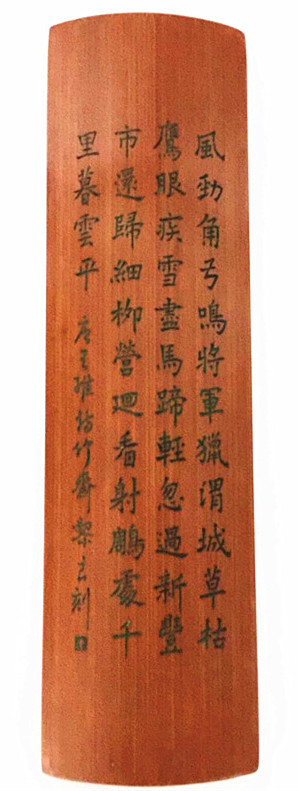 風勁角弓鳴將軍獵渭城草枯
鷹眼疾雪盡馬蹄輕忽過新豐
市還歸細柳營迴看射鵰處千
里暮雲平 唐王維詩竹齋